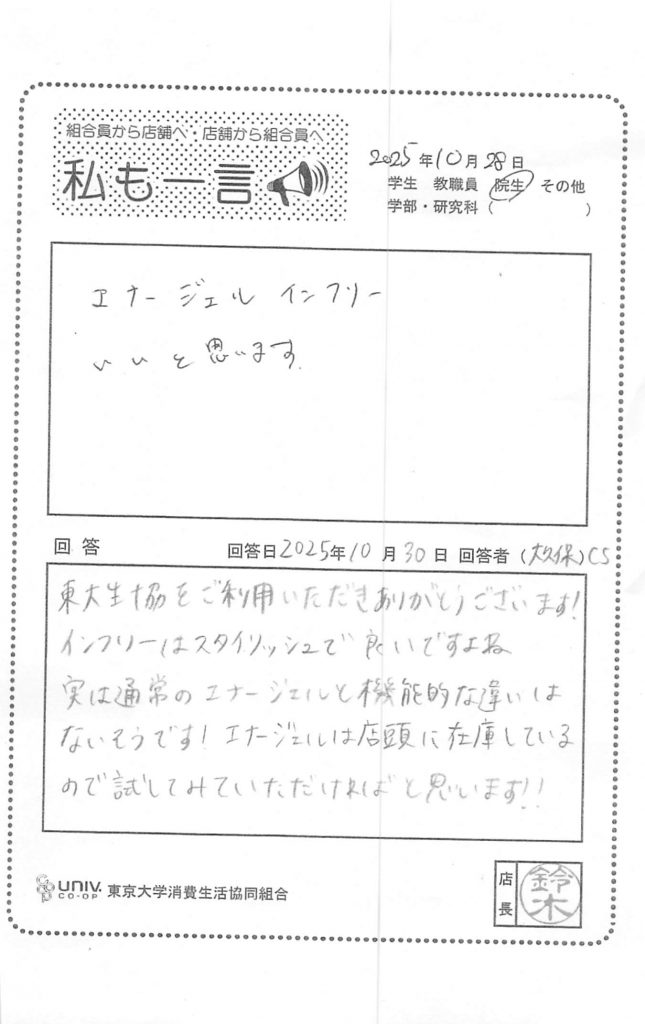 組合員から店舗へ・店舗から組合員へ
私も一言
2025年10月28日
学生 教職員 院生 その他
学部・研究科( )
エナージェル インフリー
いいと思います.
回答 回答日2025年10月30日 回答者(大久保)CS
東大生協をご利用いただきありがとうございます!
インフリーはスタイリッシュで良いですよね
実は通常のエナージェルと機能的な違いは
ないそうです! エナージェルは店頭に在庫している
ので試してみていただければと思います!!
UNIV. CO-OP 東京大学消費生活協同組合
店長 鈴木